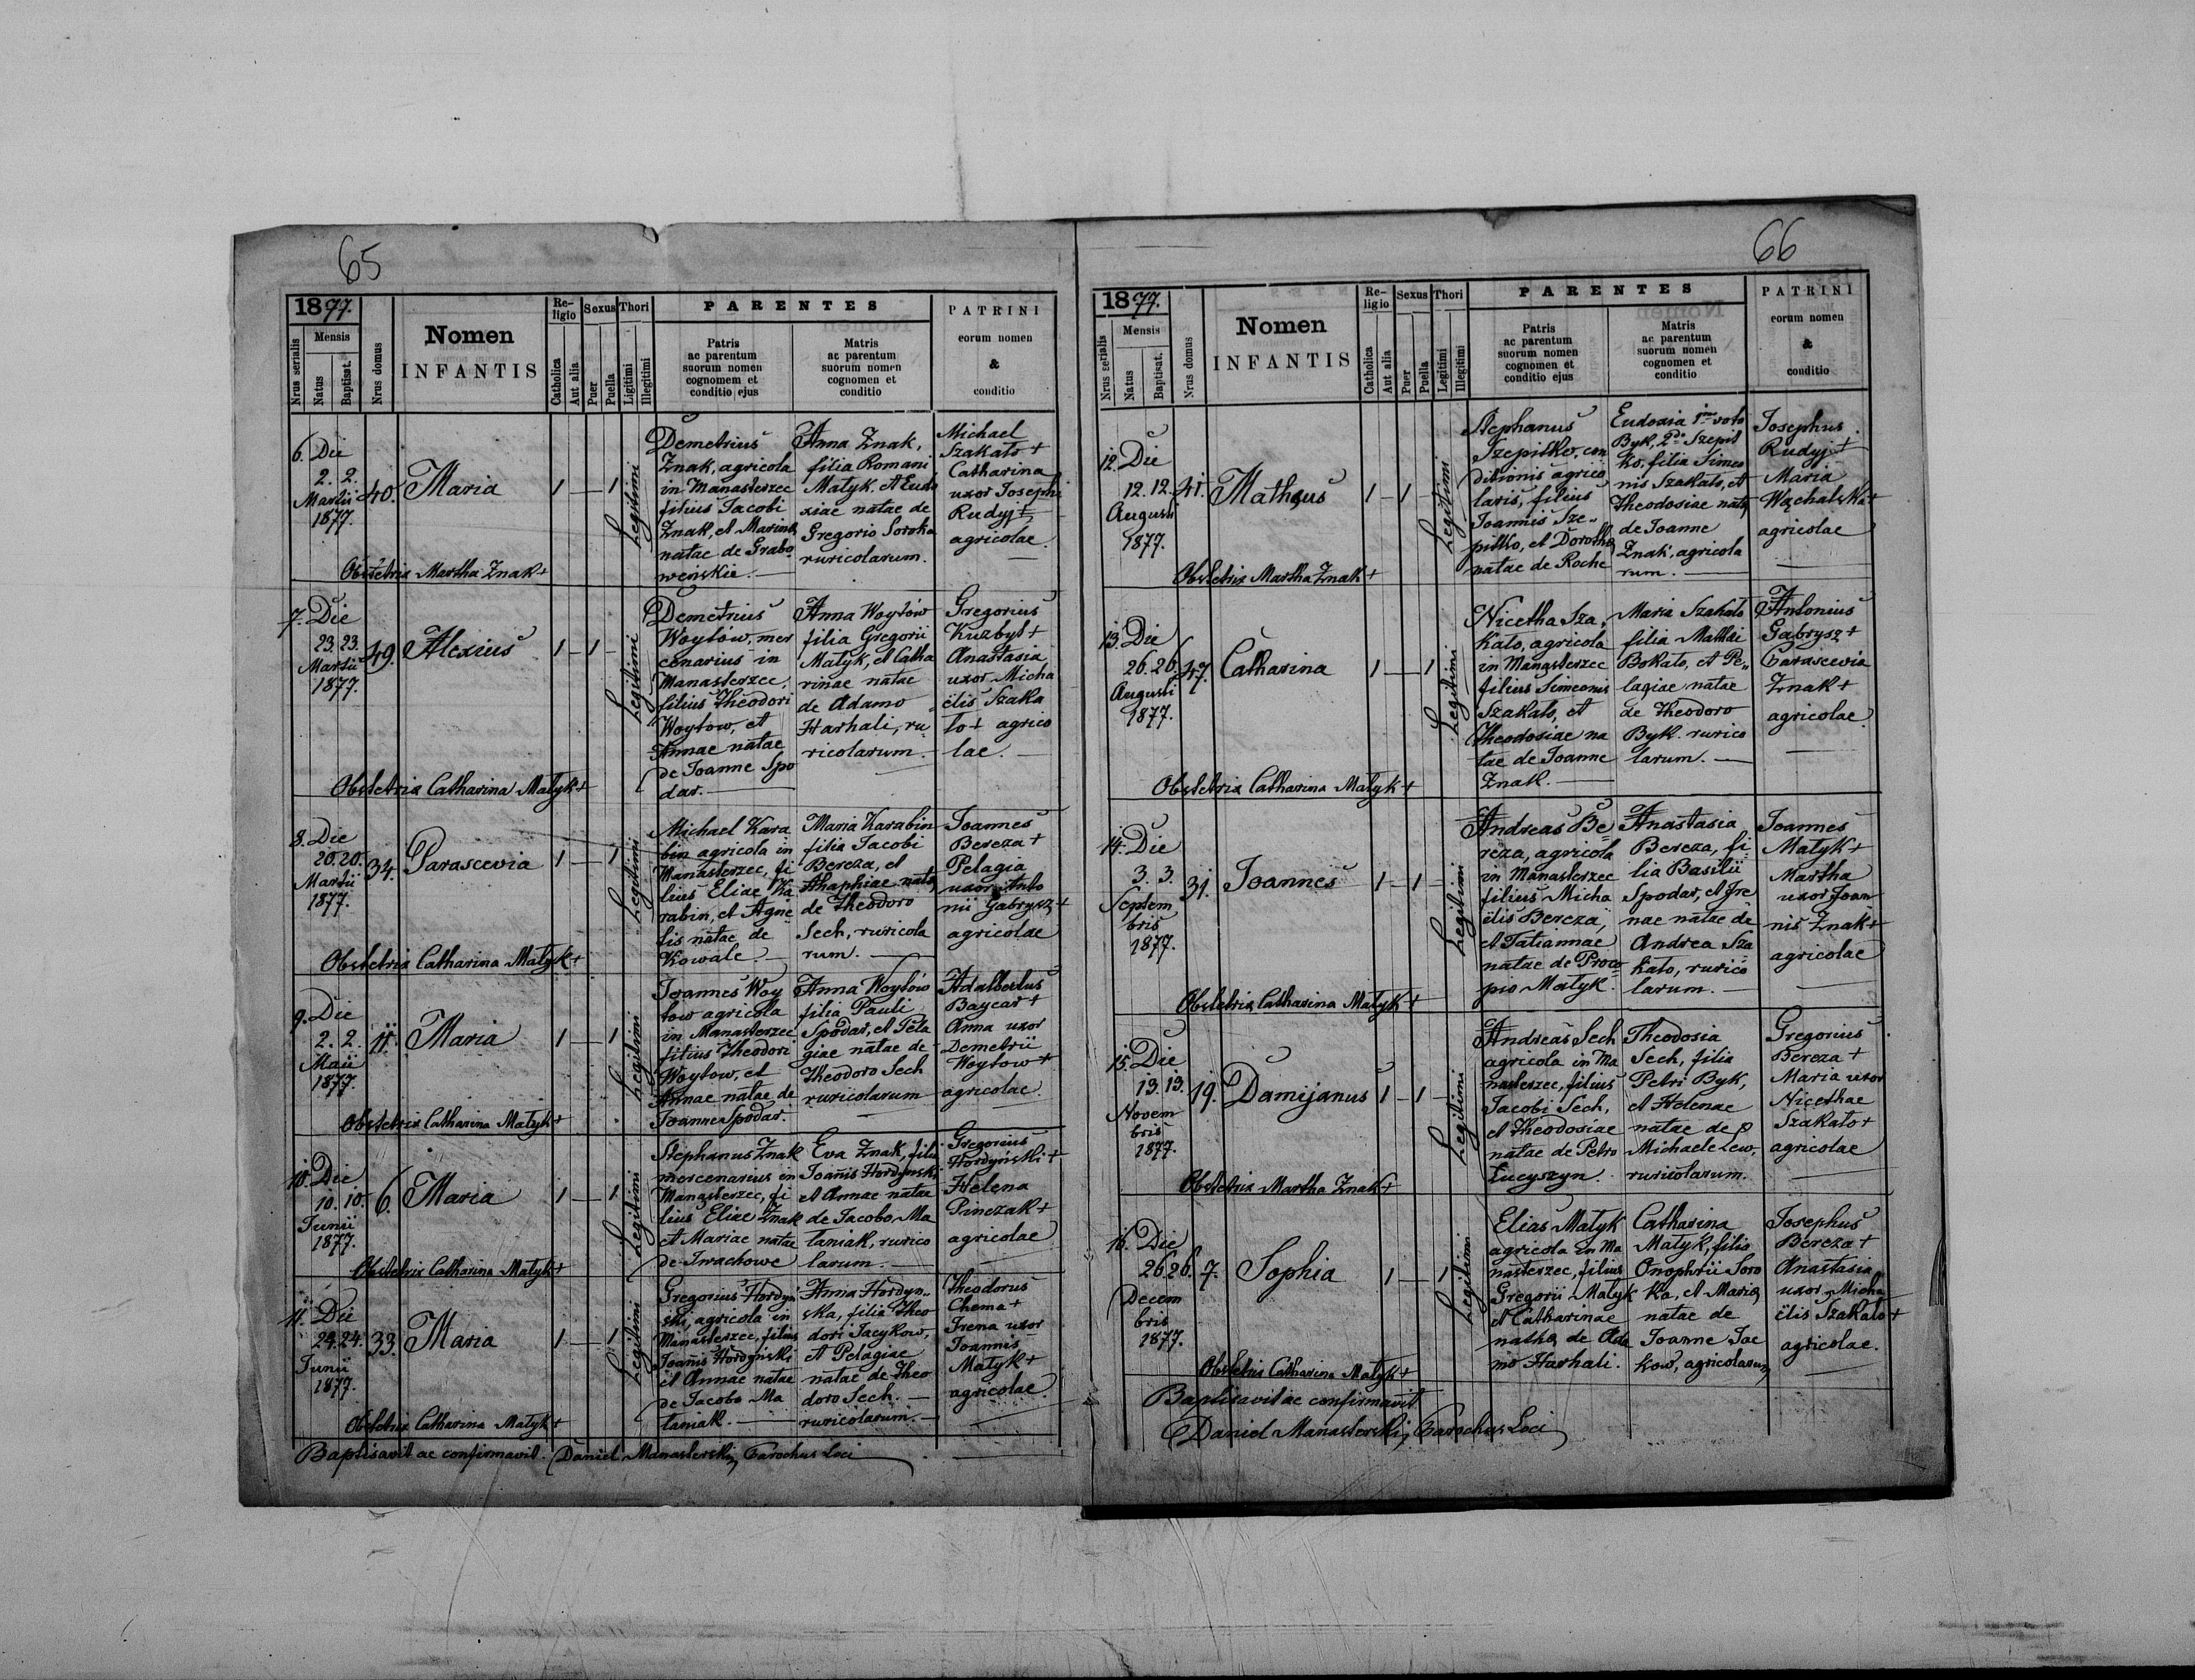 65
1877.
Nrus serialis
Mensis
Natus
Baptisat.
Nrus domus
Nomen
INFANTIS
Re-
ligio
Catholica
Aut alia
Sexus
Puer
Puella
Thori
Ligitimi
Illegitimi
PARENTES
Patris
ac parentum
suorum nomen
cognomem et
conditio ejus
Matris
ac parentum
suorum nomen
cognomen et
conditio
PATRINI
eorum nomen
&
conditio
6. Die
2. 2.
Martii
1877.
40.
Maria
1 — 1
Legitimi
Demetrius
Znak, agricola
in Manasterzec
filius Jacobi
Znak, et Marina
natae de Grabo
wenskie. —
Anna Znak,
filia Romani
Matyk, et Eudo
xiae natae de
Gregorio Soroka
ruricolarum.
Michael
Szakato +
Catharina
uxor Josephi
Rudyj +
agricolae.
Obstetrix Martha Znak +
7. Die
23. 23.
Martii
1877.
49.
Alexius
1 — 1 —
Legitimi
Demetrius
Woytów, mer
cenarius in
Manasterzec,
filius Theodori
Woytow, et
Annae natae
de Joanne Spo
dar. —
Anna Woytów
filia Gregorii
Matyk, et Catha
rinae natae
de Adamo
Harhali, ru
ricolarum. —
Gregorius
Kuzbyt +
Anastasia
uxor Micha
ëlis Szaka
to + agrico
lae. —
Obstetrix Catharina Matyk +
8. Die
20. 20.
Martii
1877.
34.
Parascevia
1 — 1
Legitimi
Michael Kara
bin agricola in
Manasterzec, fi
lius Eliae Ka
rabin, et Agne
tis natae de
Kowale. —
Maria Karabin
filia Jacobi
Bereza, et
Ahaphiae nata
de Theodoro
Sech, ruricola
rum. —
Joannes
Bereza +
Pelagia
uxor Anto
nii Gabrysz +
agricolae
Obstetrix Catharina Matyk +
9. Die
2. 2.
Maii
1877.
11.
Maria
1 — 1
Legitimi
Joannes Woy
tow agricola
in Manasterzec
filius Theodori
Woytow, et
Annae natae de
Joanne Spodar.
Anna Woytów
filia Pauli
Spodar, et Pela
giae natae de
Theodoro Sech
ruricolarum
Adalbertus
Baycar +
Anna uxor
Demetrii
Woytow +
agricolae.
Obstetrix Catharina Matyk +
10. Die
10. 10.
Junii
1877.
6.
Maria
1 — 1
Legitimi
Stephanus Znak
mercenarius in
Manasterzec, fi
lius Eliae Znak
et Mariae natae
de Iwachowe
Eva Znak, filia
Joanis Hordynski
et Annae natae
de Jacobo Ma
laniak, rurico
larum. —
Gregorius
Hordyński +
Helena
Pinczak +
agricolae
Obstetrix Catharina Matyk +
11. Die
24. 24.
Junii
1877.
33.
Maria
1 — 1
Legitimi
Gregorius Hordyn
ski, agricola in
Manasterzec, filius
Joanis Hordyński
et Annae natae
de Jacobo Ma
laniak. —
Anna Hordyn„
ska, filia Theo
dori Jacykow,
et Pelagiae
natae de Theo
doro Sech. —
ruricolarum. —
Theodorus
Choma +
Irena uxor
Joannis
Matyk +
agricolae.
Obstetrix Catharina Matyk +
Baptisavit ac confirmavit. Daniel Manasterski, Parochus Loci
66
1877.
Nrus serialis
Mensis
Natus
Baptisat.
Nrus domus
Nomen
INFANTIS
Re-
ligio
Catholica
Aut alia
Sexus
Puer
Puella
Thori
Legitimi
Illegitimi
PARENTES
Patris
ac parentum
suorum nomen
cognomen et
conditio ejus
Matris
ac parentum
suorum nomen
cognomen et
conditio
PATRINI
eorum nomen
&
conditio
12. Die
12. 12.
Augusti
1877.
41.
Matheus
1 — 1 —
Legitimi
Stephanus
Szepitko, con
ditionis agrico
laris, filius
Joannis Sze„
pitko, et Dorothea
natae de Roche
Eudoxia 1mo voto
Byk, 2do Szepit
ko, filia Simeo
nis Szakato, et
Theodosiae nata
de Joanne
Znak, agricola
rum. —
Josephus
Rudyj +
Maria
Wachalska +
agricolae
Obstetrix Martha Znak +
13. Die
26. 26.
Augusti
1877.
47.
Catharina
1 — 1
Legitimi
Nicetha Sza„
kato, agricola
in Manasterzec
filius Simeonis
Szakato, et
Theodosiae na
tae de Joanne
Znak. —
Maria Szakato
filia Mathei
Bokato, et Pe„
lagiae natae
de Theodoro
Byk. rurico
larum. —
Antonius
Gabrysz +
Parascevia
Znak +
agricolae.
Obstetrix Catharina Matyk +
14. Die
3. 3.
Septem
bris
1877.
31.
Joannes
1 — 1 —
Legitimi
Andreas Be
reza, agricola
in Manasterzec
filius Micha
ëlis Bereza,
et Tatiannae
natae de Proco
pio Matyk.
Anastasia
Bereza, fi
lia Basilii
Spodar, et Ire
nae natae de
Andrea Sza
kato, rurico
larum. —
Joannes
Matyk +
Martha
uxor Joan
nis Znak +
agricolae
Obstetrix Catharina Matyk +
15. Die
13. 13.
Novem
bris
1877.
19.
Damijanus
1 — 1 —
Legitimi
Andreas Sech
agricola in Ma
nasterzec, filius
Jacobi Sech,
et Theodosiae
natae de Petro
Lucyszyn.
Theodosia
Sech, filia
Petri Byk,
et Helenae
natae de
Michaele Lew,
ruricolarum.
Gregorius
Bereza +
Maria uxor
Nicethae
Szakato +
agricolae
Obstetrix Martha Znak +
16. Die
26. 26.
Decem
bris
1877.
7.
Sophia
1 — 1
Legitimi
Elias Matyk
agricola in Ma
nasterzec, filius
Gregorii Matyk
et Catharinae
natae de Ada
mo Harhali.
Catharina
Matyk, filia
Onophrii Soro
ka, et Maria
natae de
Joanne Jac
kow, agricolarum
Josephus
Bereza +
Anastasia
uxor Micha
ëlis Szakato +
agricolae.
Obstetrix Catharina Matyk +
Baptisavit ac confirmavit
Daniel Manasterski, Parochus Loci